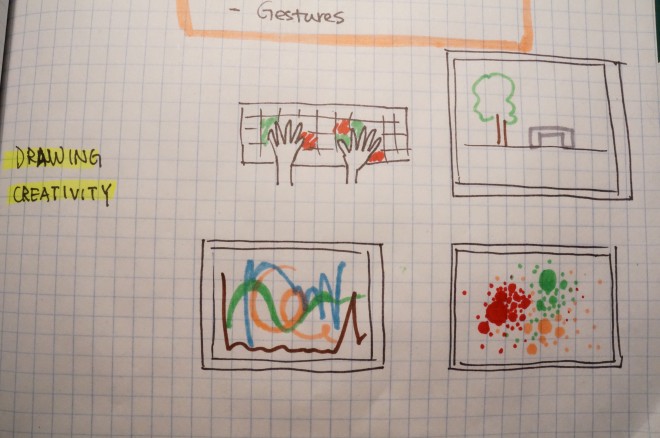 - Gestures
DRAWING
CREATIVITY